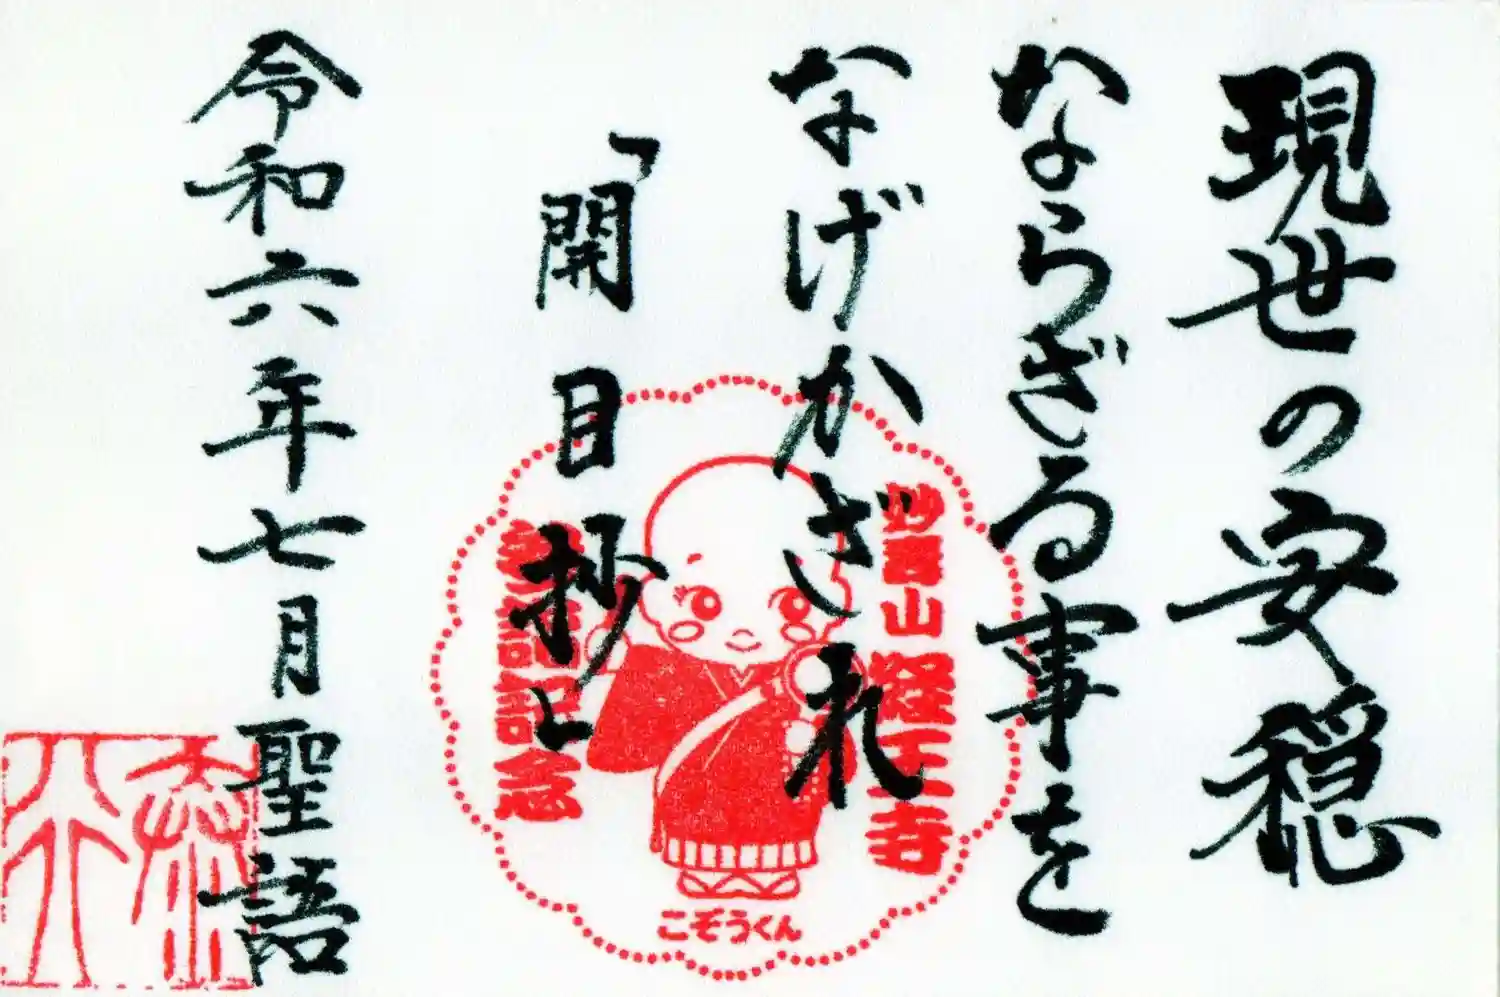 現世の安穏
ならざる事を
なげかざれ
「開目抄」
令和六年七月聖語
山 経王寺
参詣記念
こぞうくん